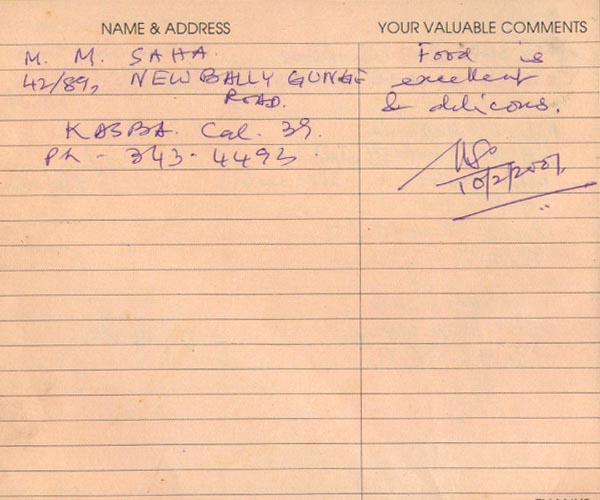 NAME & ADDRESS
YOUR VALUABLE COMMENTS
M. M. SAHA.
42/89, NEW BALLY GUNGE
ROAD.
KASBA. Cal. 39.
Ph - 343-4493.
Food is
excellent
& delicous.
10/2/2001